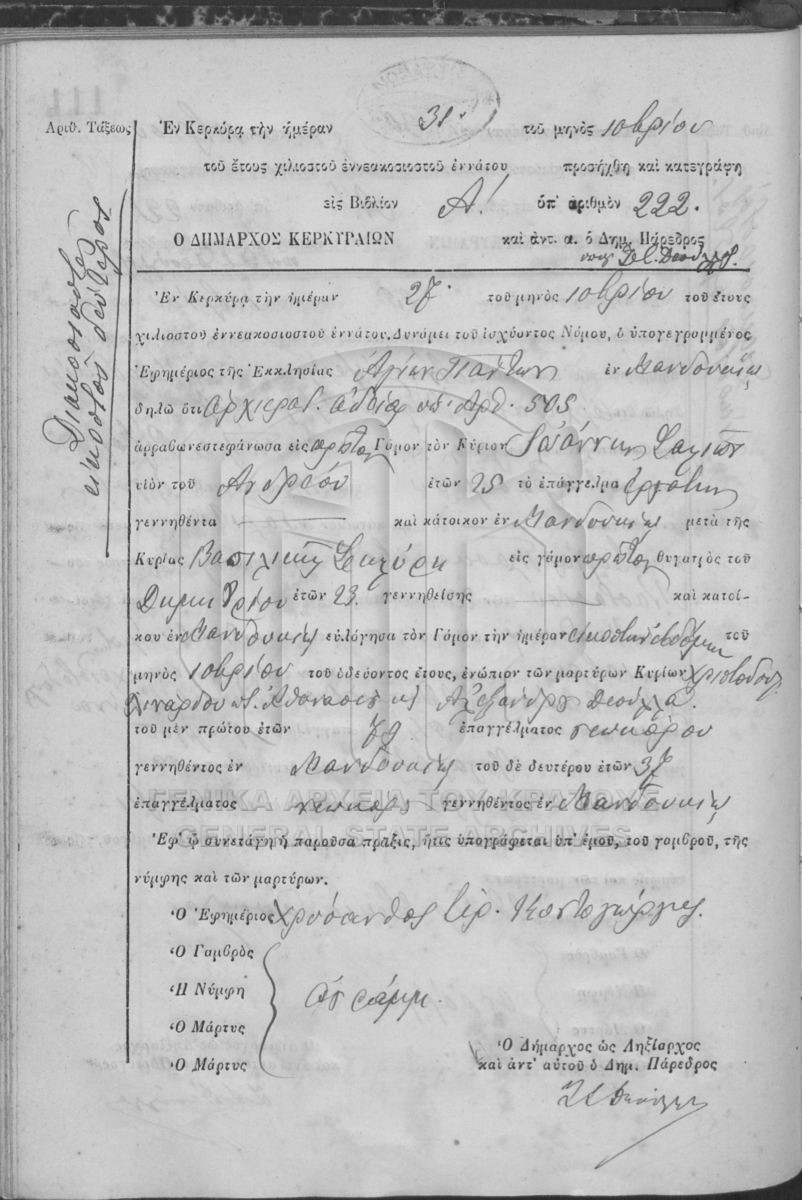 Ἀριθ. Τάξεως
Διακοσιοστὸς
εἰκοστὸς δεύτερος
Ἐν Κερκύρᾳ τὴν ἡμέραν 31 τοῦ μηνὸς 10βρίου
τοῦ ἔτους χιλιοστοῦ ἐννεακοσιοστοῦ ἐννάτου προσήχθη καὶ κατεγράφη
εἰς Βιβλίον Α! ὑπ' ἀριθμὸν 222.
Ο ΔΗΜΑΡΧΟΣ ΚΕΡΚΥΡΑΙΩΝ καὶ ἀντ. α. ὁ Δημ. Πάρεδρος
Ἐν Κερκύρᾳ τὴν ἡμέραν 27 τοῦ μηνὸς 10βρίου τοῦ ἔτους
χιλιοστοῦ ἐννεακοσιοστοῦ ἐννάτου. Δυνάμει τοῦ ἰσχύοντος Νόμου, ὁ ὑπογεγραμμένος
Ἐφημέριος τῆς Ἐκκλησίας Ἁγίων Πάντων ἐν Μανδουκίῳ
δηλῶ ὅτι ἀρχιερατ. ἀδείᾳ ὑπ' ἀρθ. 505
ἀρραβωνεστεφάνωσα εἰς πρῶτον Γάμον τὸν Κύριον Ἰωάννην
υἱὸν τοῦ Ἀνδρέου ἐτῶν 25 τὸ ἐπάγγελμα ἐργάτην
γεννηθέντα καὶ κάτοικον ἐν Μανδουκίῳ μετὰ τῆς
Κυρίας Βασιλικῆς εἰς γάμον πρῶτον θυγατρὸς τοῦ
Δημητρίου ἐτῶν 23 γεννηθείσης καὶ κατοί-
κου ἐν Μανδουκίῳ εὐλόγησα τὸν Γάμον τὴν ἡμέραν εἰκοστὴν ἑβδόμην τοῦ
μηνὸς 10βρίου τοῦ ὁδεύοντος ἔτους, ἐνώπιον τῶν μαρτύρων Κυρίων
Ἀθανασίου κ Ἀλεξάνδρου
τοῦ μὲν πρώτου ἐτῶν 79 ἐπαγγέλματος
γεννηθέντος ἐν Μανδουκίῳ τοῦ δὲ δευτέρου ἐτῶν 37
ἐπαγγέλματος γεννηθέντος ἐν Μανδουκίῳ
ΓΕΝΙΚΑ ΑΡΧΕΙΑ ΤΟΥ ΚΡΑΤΟΥΣ
GENERAL STATE ARCHIVES
Ἐφ' ᾧ συνετάγη ἡ παροῦσα πρᾶξις, ἥτις ὑπογράφεται ὑπ' ἐμοῦ, τοῦ γαμβροῦ, τῆς
νύμφης καὶ τῶν μαρτύρων.
Ὁ Ἐφημέριος Χρύσανθος Ἱερ. Κοντογιώργης.
Ὁ Γαμβρὸς
Ἡ Νύμφη ἀγράμμ.
Ὁ Μάρτυς
Ὁ Μάρτυς
Ὁ Δήμαρχος ὡς Ληξίαρχος
καὶ ἀντ' αὐτοῦ ὁ Δημ. Πάρεδρος